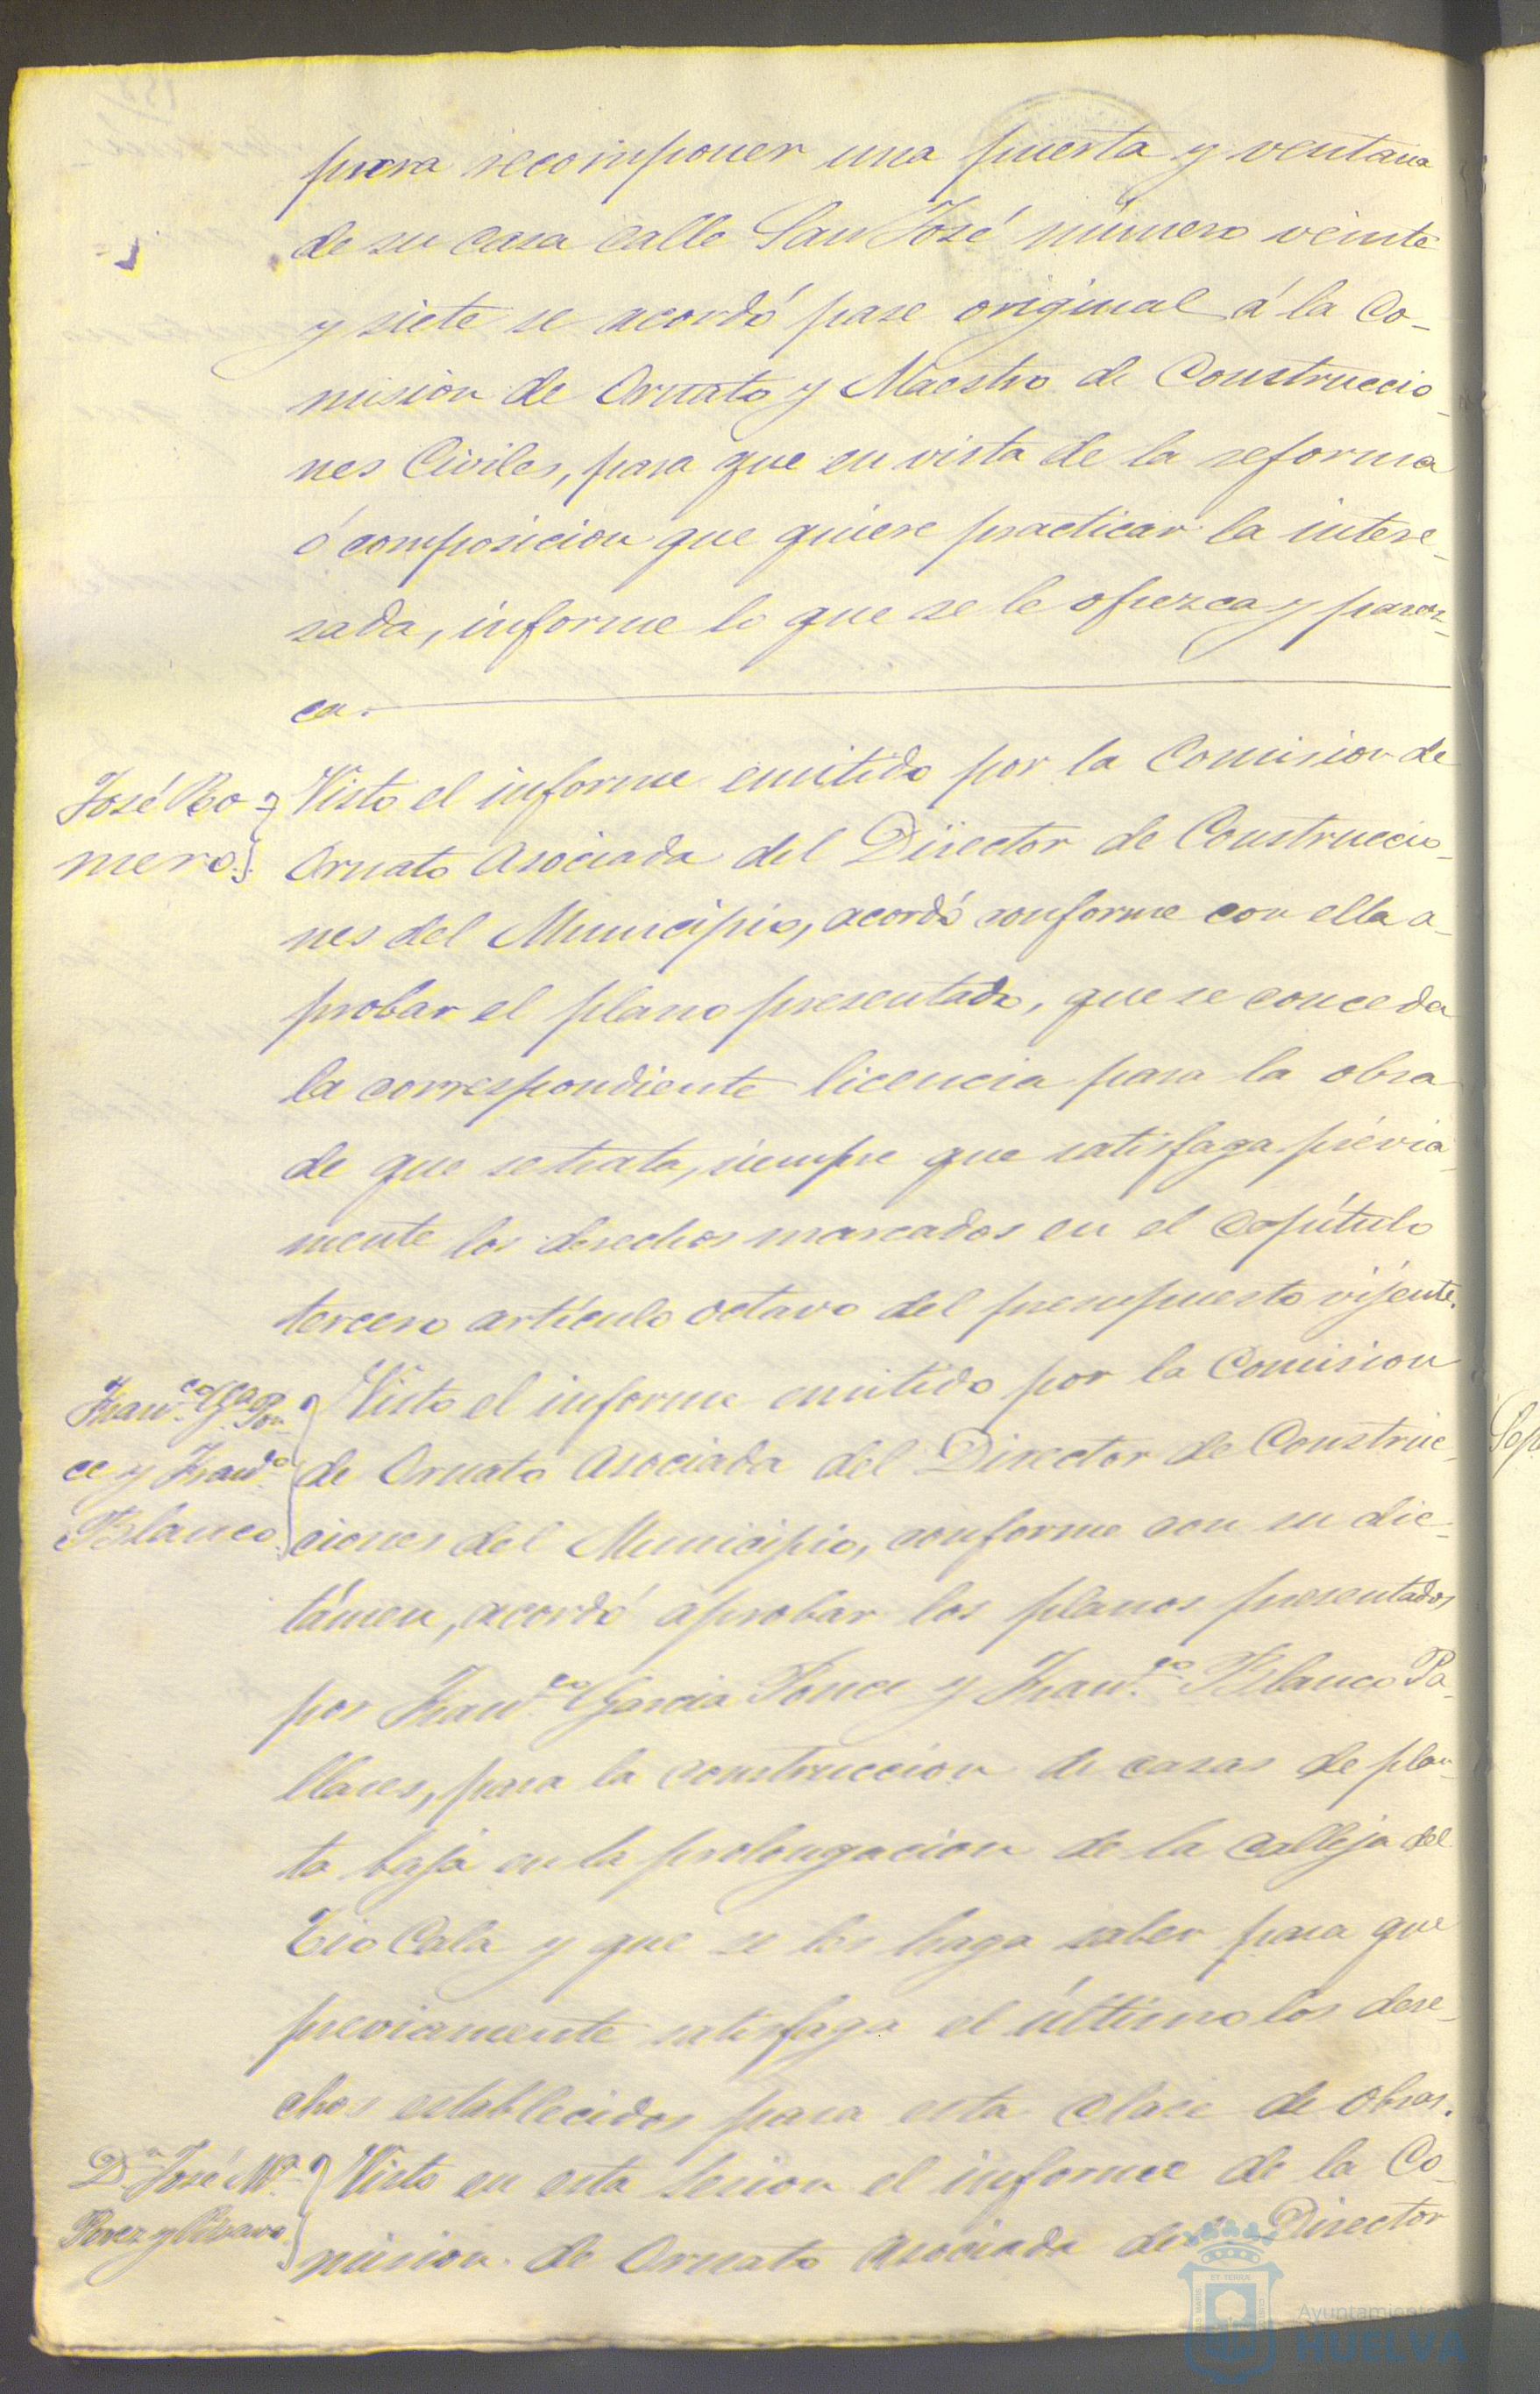 para recomponer una puerta y ventana
de su casa calle San José número veinte
y siete se acordó pase original á la Co-
mision de Ornato y Maestro de Construccio-
nes Civiles, para que en vista de la reforma
ó composicion que quiere practicar la intere-
sada, informe lo que se le ofrezca y parez-
ca.
José Ro-
mero.
Visto el informe emitido por la Comision de
Ornato Asociada del Director de Construccio-
nes del Municipio, acordó conforme con ella a-
probar el plano presentado, que se conceda
la correspondiente licencia para la obra
de que se trata, siempre que satisfaga prévia-
mente los derechos marcados en el Capítulo
tercero artículo octavo del presupuesto vijente.
Franco. Ga. Pon-
ce y Franco.
Blanco.
Visto el informe emitido por la Comision
de Ornato Asociada del Director de Construc-
ciones del Municipio, conforme con su dic-
támen, acordó aprobar los planos presentados
por Franco. Garcia Ponce y Franco. Blanco Pa-
llares, para la construccion de casas de plan-
ta baja en la prolongacion de la Calleja del
Tio Cala y que se les haga saber para que
previamente satisfaga el último los dere-
chos establecidos para esta clase de obras.
Dn. José Ma.
Perez y
Visto en esta sesion el informe de la Co-
mision de Ornato Asociada del Director
Ayuntamiento de
HUELVA